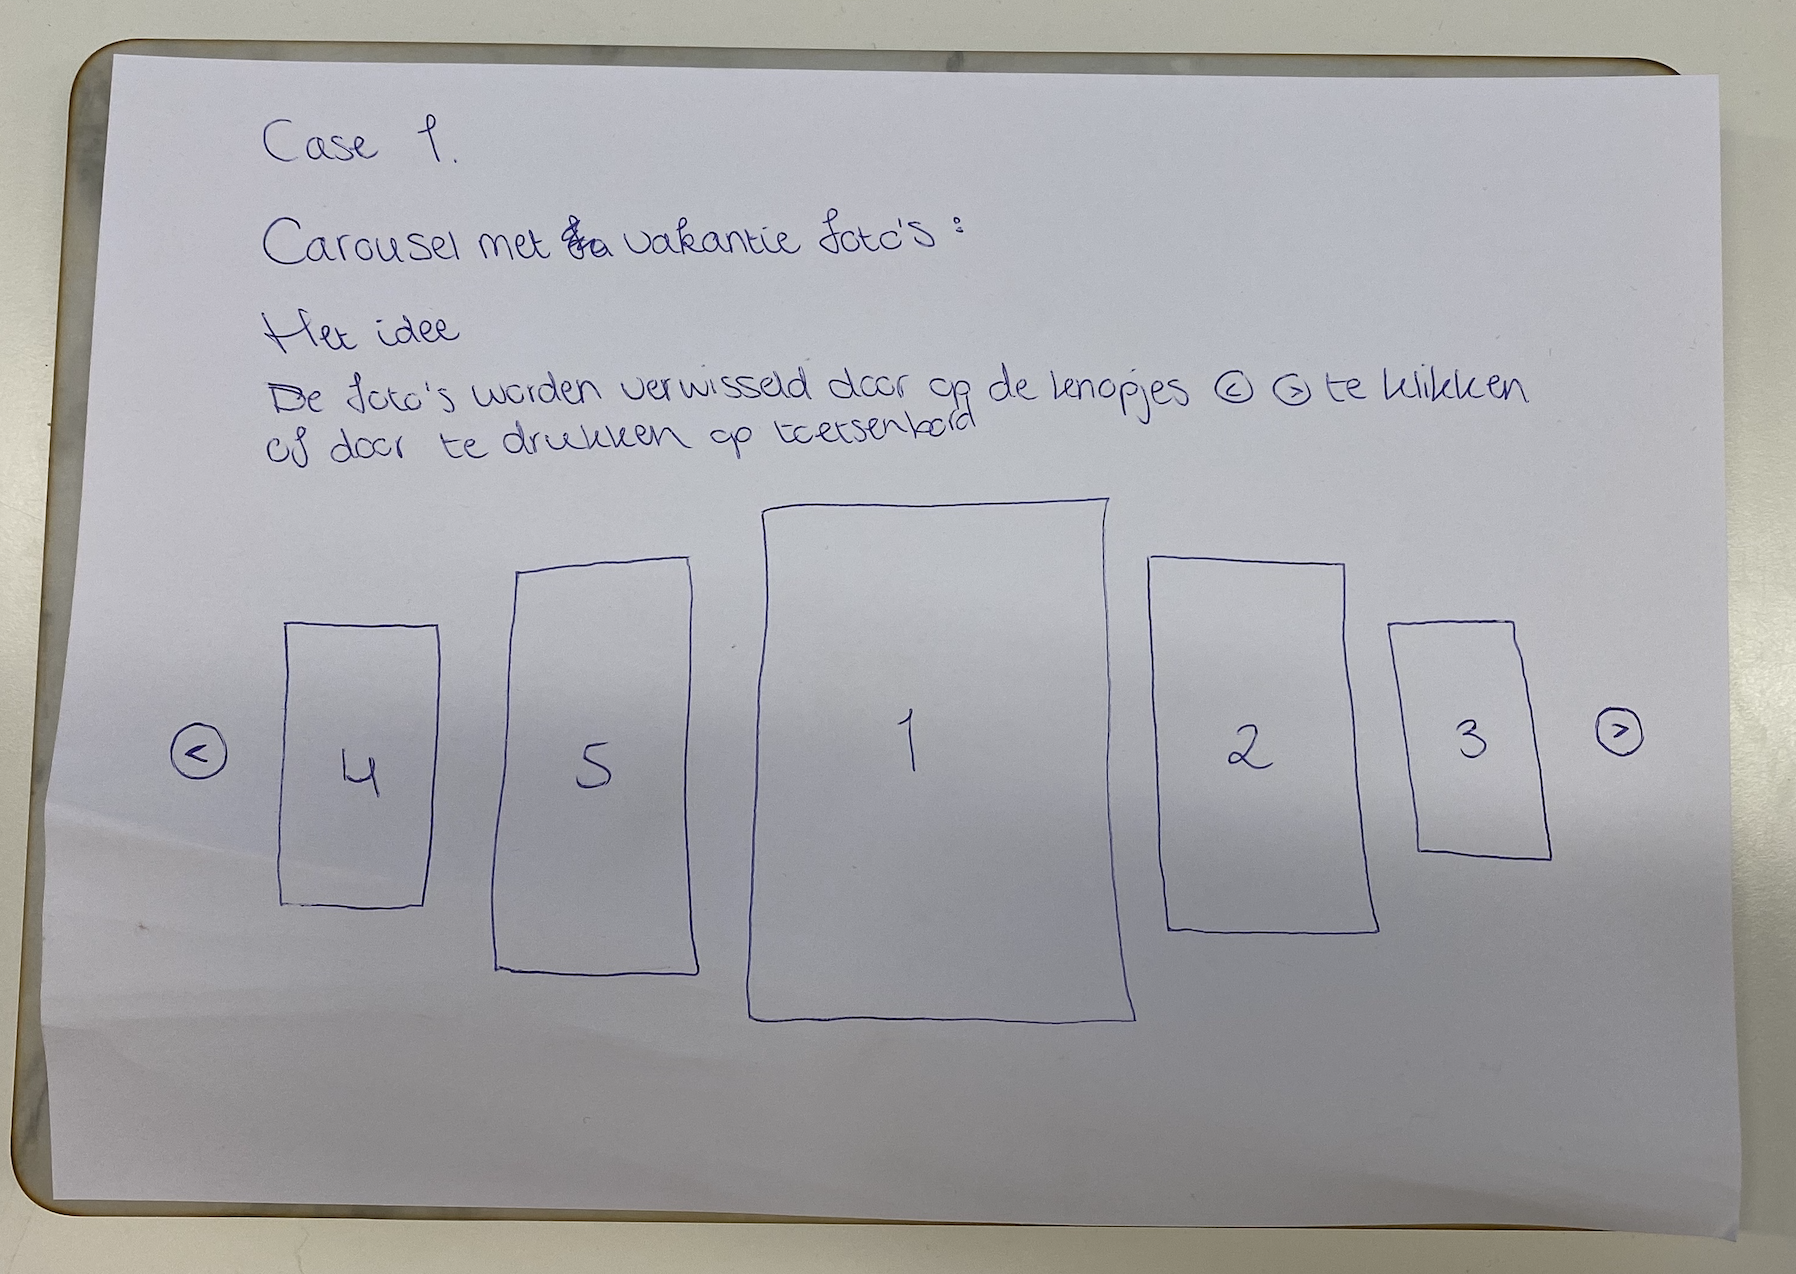 Case 1.
Carousel met vakantie foto's:
Het idee
De foto's worden verwisseld door op de knopjes < > te klikken
of door te drukken op toetsenbord
< 4 5 1 2 3 >